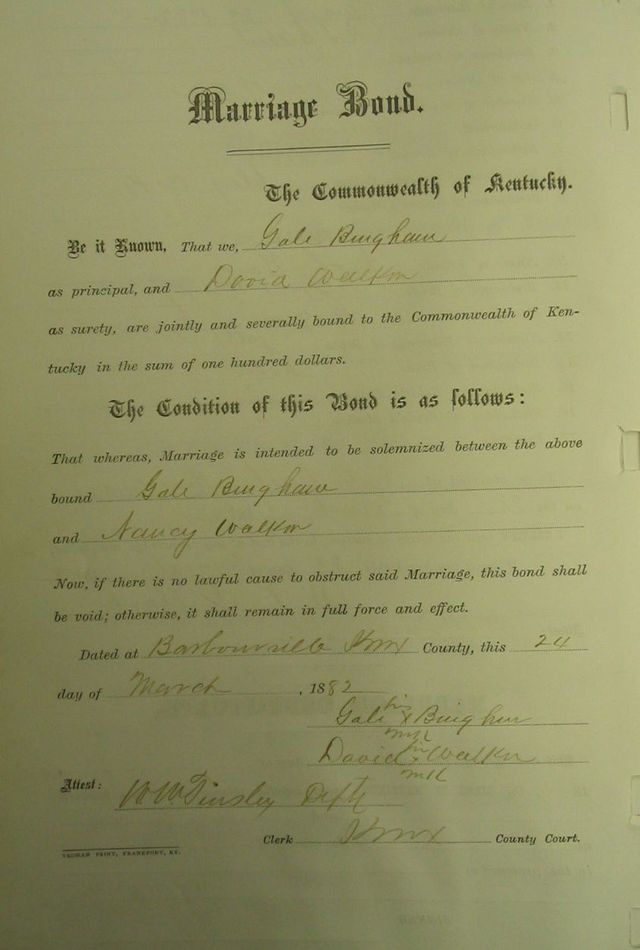 Marriage Bond.
The Commonwealth of Kentucky.
Be it Known, That we, Gale Bingham
as principal, and David Walker
as surety, are jointly and severally bound to the Commonwealth of Ken-
tucky in the sum of one hundred dollars.
The Condition of this Bond is as follows:
That whereas, Marriage is intended to be solemnized between the above
bound Gale Bingham
and Nancy Walker
Now, if there is no lawful cause to obstruct said Marriage, this bond shall
be void; otherwise, it shall remain in full force and effect.
Dated at Barbourville Knox County, this 24
day of March, 1882
his
Gale x Bingham
mk
his
David x Walker
mk
Attest: W W Tinsley
Clerk Knox County Court.
YEOMAN PRINT, FRANKFORT, KY.